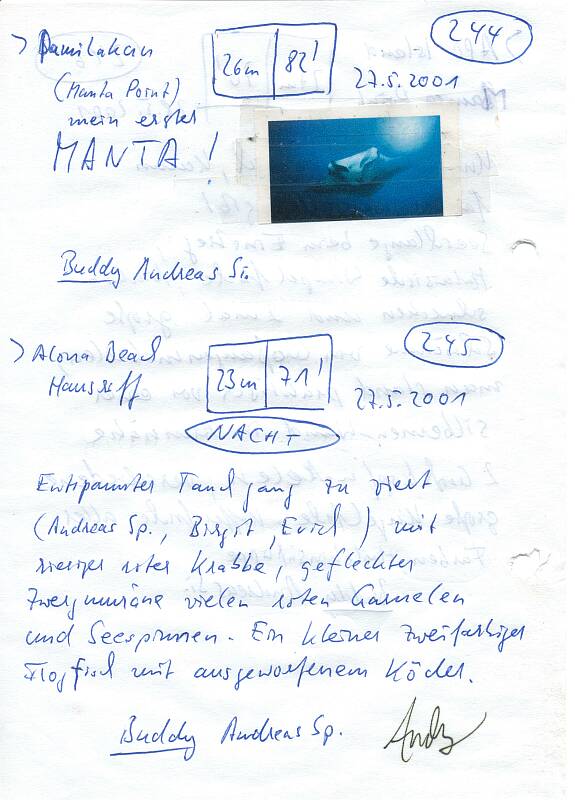 > Pamilakan 26m 82' 244
(Manta Point) 27.5.2001
mein erster
MANTA!
Buddy Andreas Si.
> Alona Beach 23m 71' 245
Hausriff 27.5.2001
NACHT
Entspannter Tauchgang zu viert
(Andreas Sp., Birgit, Erich) mit
riesiger roter Krabbe, gefleckter
Zwergmuräne vielen roten Garnelen
und Seespinnen. Ein kleiner zweifarbiger
Froschfisch mit ausgeworfenem Köder.
Buddy Andreas Sp. Andy